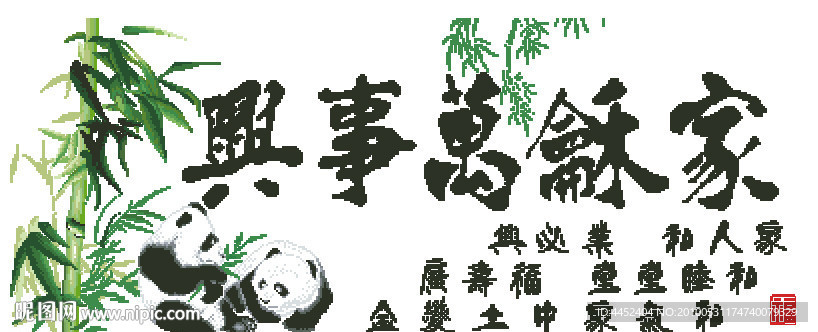 家龢萬事興
家人和 業必興
和睦 福壽廣
和氣家中土變金
福
昵图网 www.nipic.com
ID:4452404 NO:20100531174740079329